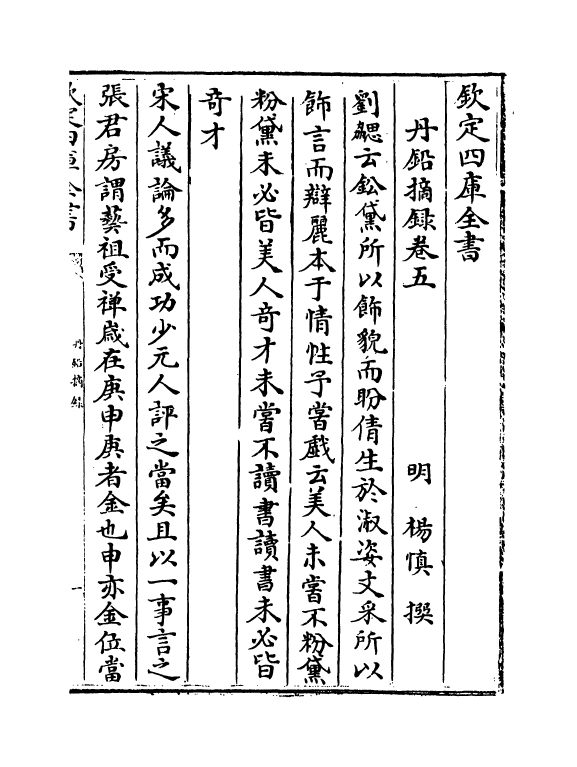 欽定四庫全書
丹鉛摘録卷五
明 楊慎 撰
劉勰云鉛黛所以飾貌而盼倩生於淑姿文采所以
飾言而辯麗本于情性予嘗戲云美人未嘗不粉黛
粉黛未必皆美人奇才未嘗不讀書讀書未必皆
奇才
宋人議論多而成功少元人評之當矣且以一事言之
張君房謂藝祖受禅歳在庚申庚者金也申亦金位當
欽定四庫全書
丹鉛摘録
一